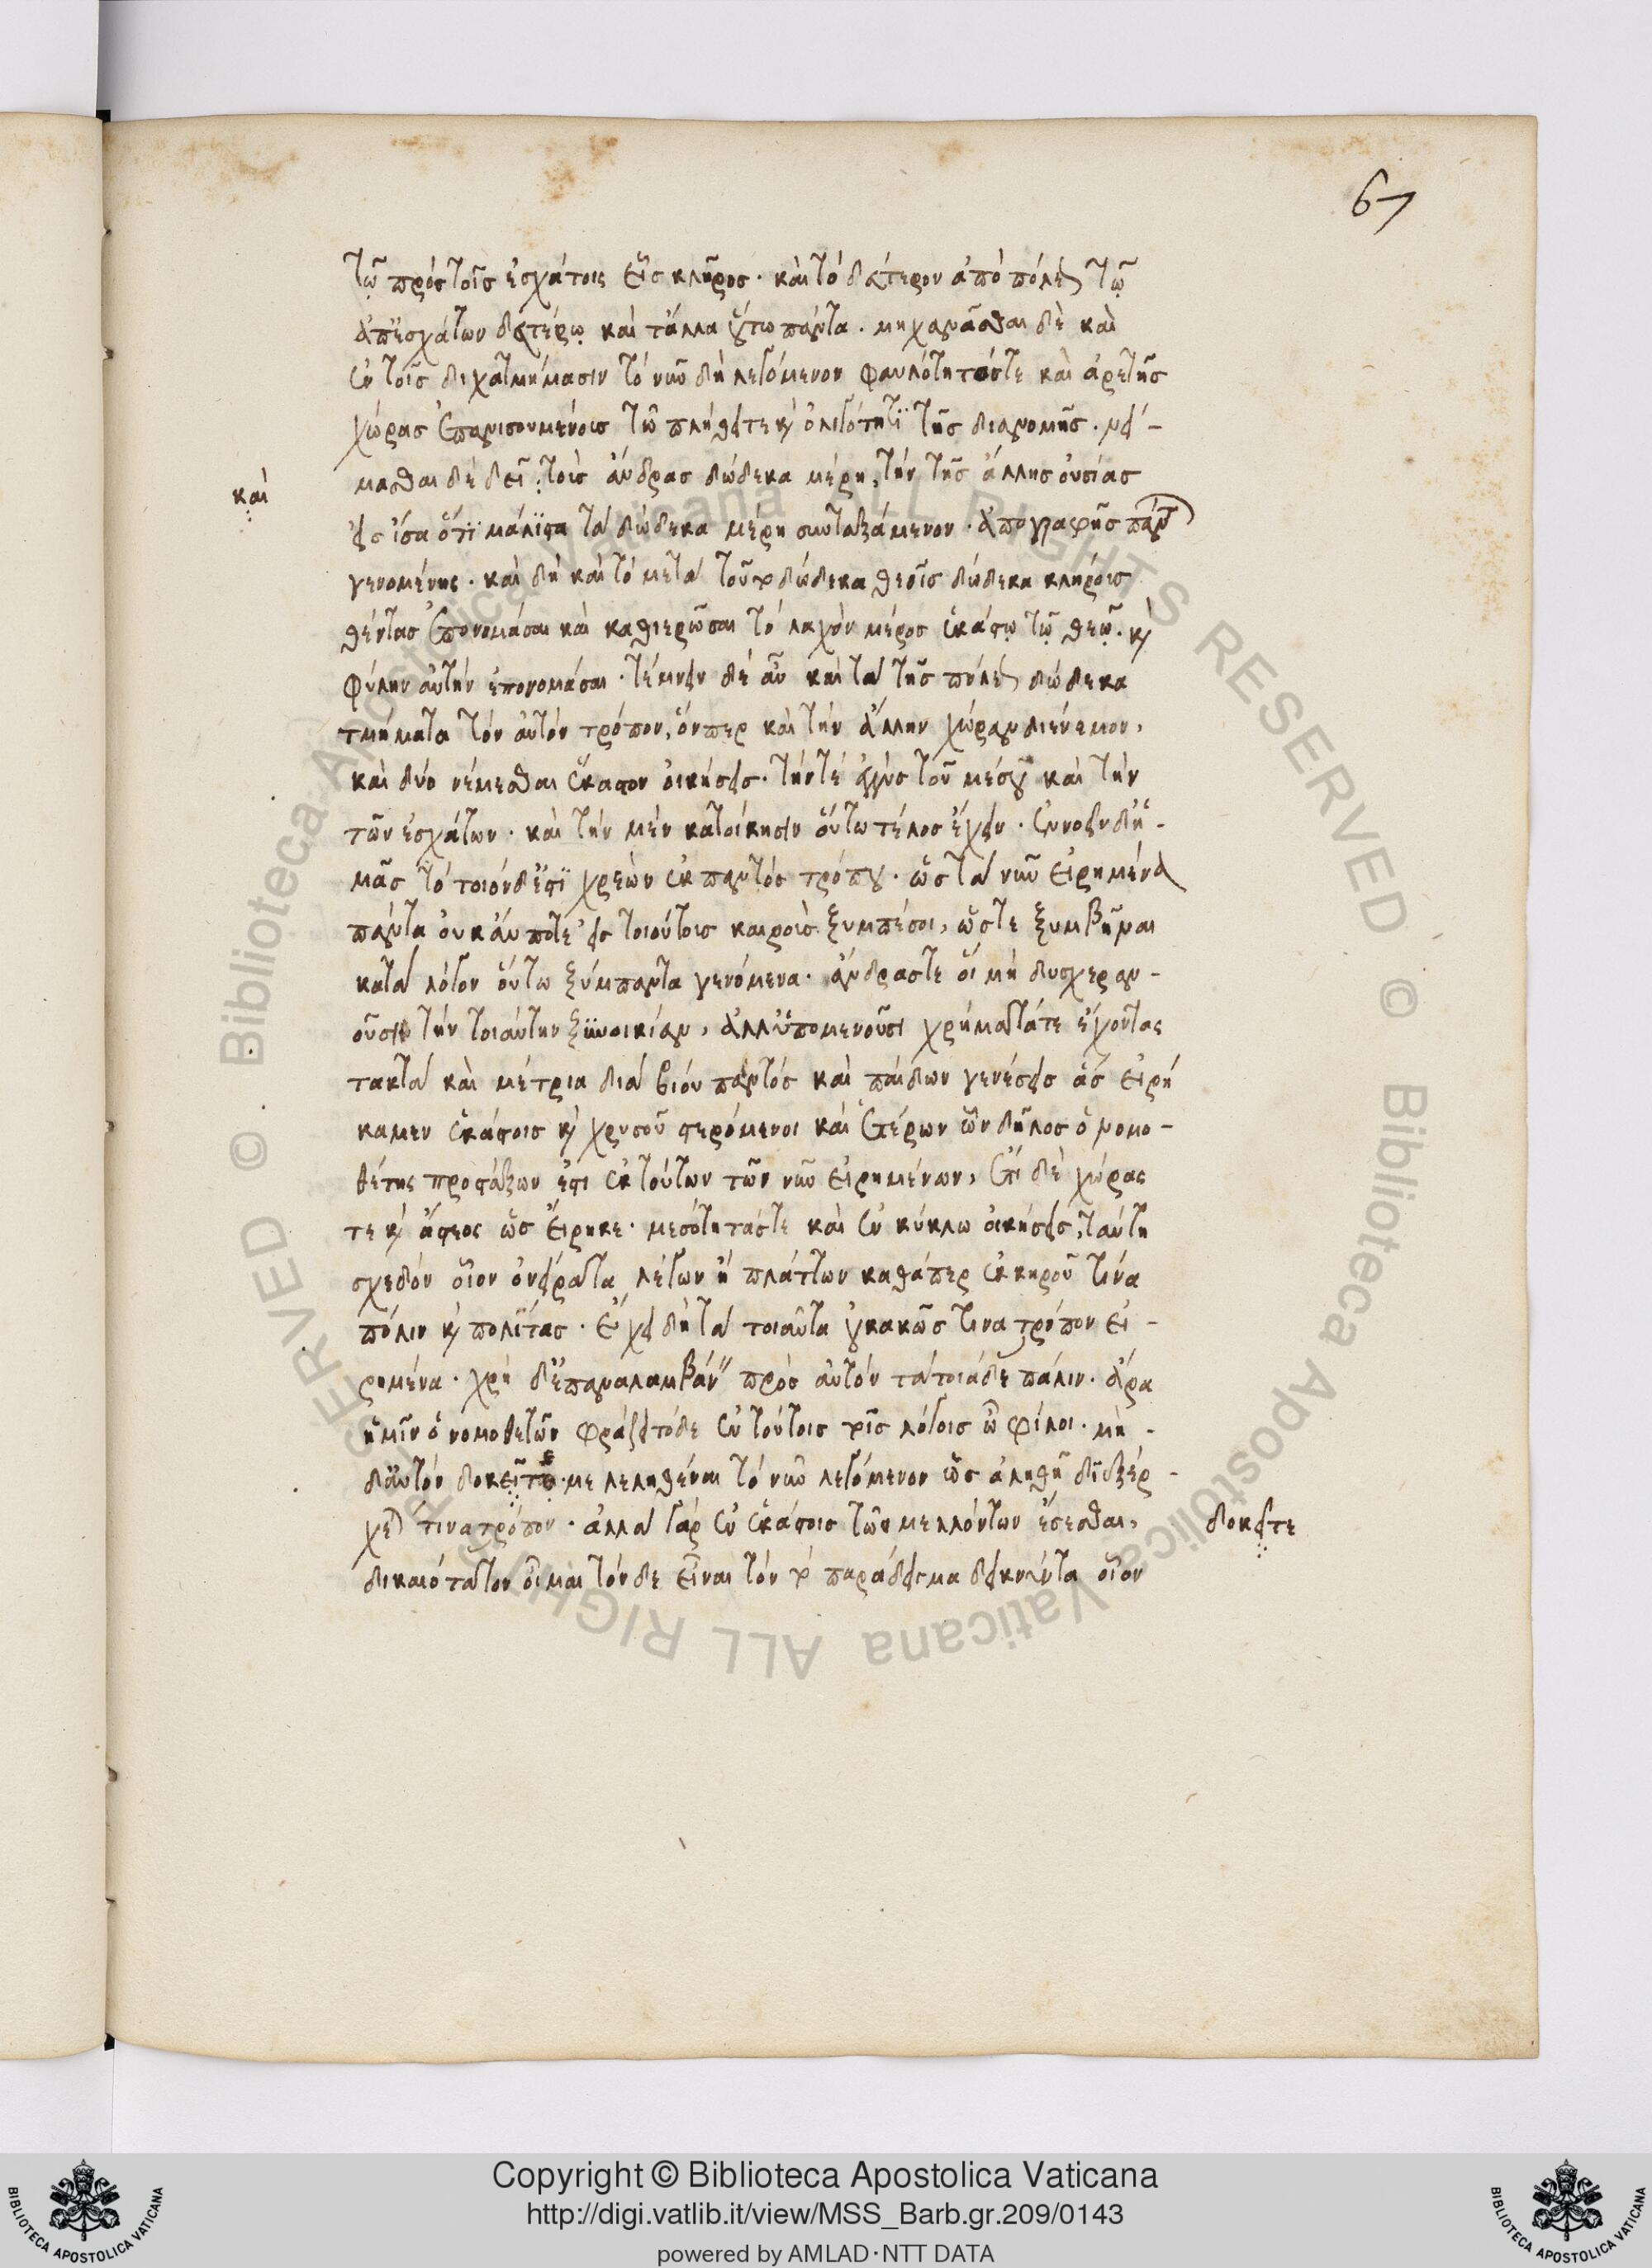 67
τῷ πρὸς τοῖς ἐσχάτοις εἷς κλῆρος· καὶ τὸ δεύτερον ἀπὸ πόλεως τῷ
ἀπ' ἐσχάτων δευτέρῳ καὶ τἄλλα οὕτω πάντα. μηχανᾶσθαι δὲ καὶ
ἐν τοῖς δίχα τμήμασιν τὸ νῦν δὴ λεγόμενον φαυλότητός τε καὶ ἀρετῆς
χώρας ἐπανισουμένοις τῷ πλήθει τε καὶ ὀλιγότητι τῆς διανομῆς. νεί-
μασθαι δὲ δεῖ τοὺς ἄνδρας δώδεκα μέρη, τὴν τῆς ἄλλης οὐσίας
καὶ
εἰς ἴσα ὅτι μάλιστα τὰ δώδεκα μέρη συνταξάμενον· ἀπογραφῆς πάντων
γενομένης. καὶ δὴ καὶ τὸ μετὰ τοῦτο δώδεκα θεοῖς δώδεκα κλήρους
θέντας ἐπονομάσαι καὶ καθιερῶσαι τὸ λαχὸν μέρος ἑκάστῳ τῷ θεῷ. καὶ
φύλην αὐτὴν ἐπονομάσαι· τέμνειν δὲ αὖ καὶ τὰ τῆς πόλεως δώδεκα
τμήματα τὸν αὐτὸν τρόπον, ὅνπερ καὶ τὴν ἄλλην χώραν διένεμον,
καὶ δύο νέμεσθαι ἕκαστον οἰκήσεις· τήν τε ἐγγὺς τοῦ μέσου καὶ τὴν
τῶν ἐσχάτων· καὶ τὴν μὲν κατοίκησιν οὕτω τέλος ἔχειν. ἐννοεῖν δ' ἡ-
μᾶς τὸ τοιόνδ' ἐστὶ χρεὼν ἐκ παντὸς τρόπου. ὡς τὰ νῦν εἰρημένα
πάντα οὐκ ἄν ποτε εἰς τοιούτους καιροὺς ξυμπέσοι, ὥστε ξυμβῆναι
κατὰ λόγον οὕτω ξύμπαντα γενόμενα· ἄνδρας τε οἳ μὴ δυσχεραν-
οῦσι τὴν τοιαύτην ξυνοικίαν, ἀλλ' ὑπομενοῦσι χρήματά τε ἔχοντας
τακτὰ καὶ μέτρια διὰ βίου παντὸς καὶ παίδων γενέσεις ἃς εἰρή
καμεν ἑκάστοις καὶ χρυσοῦ στερόμενοι καὶ ἑτέρων ὧν δῆλος ὁ νομο-
θέτης προστάξων ἐστι ἐκ τούτων τῶν νῦν εἰρημένων, ἔτι δὲ χώρας
τε καὶ ἄστεος ὡς εἴρηκε· μεσότητάς τε καὶ ἐν κύκλω οἰκήσεις, ταύτη
σχεδὸν οἷον ὀνείρατα λέγων ἢ πλάττων καθάπερ ἐκ κηροῦ τινα
πόλιν καὶ πολίτας. ἔχει δὴ τὰ τοιαῦτα οὐ κακῶς τινα τρόπον εἰ-
ρημένα. χρὴ δ' ἐπαναλαμβάνειν πρὸς αὐτὸν τὰ τοιάδε πάλιν. ἄρα
ἡμῖν ὁ νομοθετῶν φράζει τόδε ἐν τούτοις τοῖς λόγοις ὦ φίλοι. μη-
δ' αὐτὸν δοκεῖτέ με λεληθέναι τὸ νῦν λεγόμενον ὡς ἀληθῆ διεξέρ-
χεται τινα τρόπον. ἀλλὰ γὰρ ἐν ἑκάστοις τῶν μελλόντων ἔσεσθαι,
δοκεῖτε
δικαιότατον οἶμαι τόνδε εἶναι τὸν τὸ παράδειγμα δεικνύντα οἷον
Copyright © Biblioteca Apostolica Vaticana
http://digi.vatlib.it/view/MSS_Barb.gr.209/0143
powered by AMLAD·NTT DATA